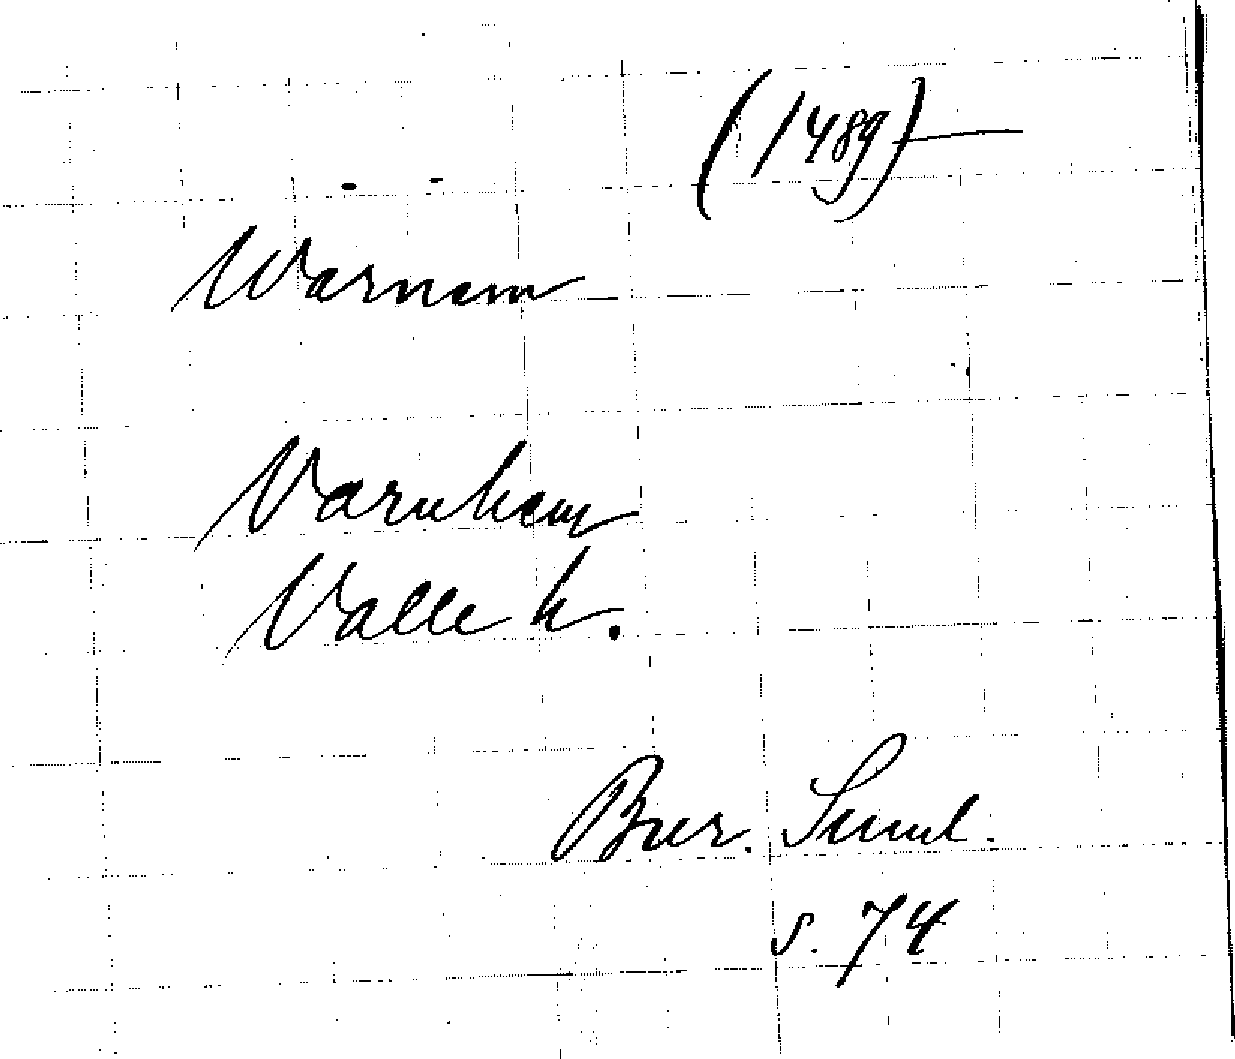 (1489)
Warnem
Varnhem
Valle h.
Bur. Saml.
s. 74